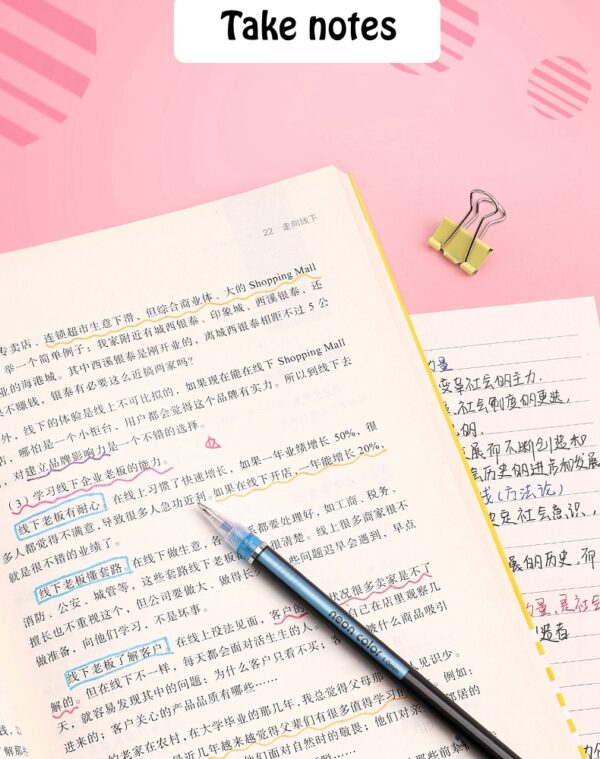 Take notes
22 走向线下
专卖店、连锁超市生意下滑，但综合商业体、大的 Shopping Mall
举一个简单例子：我家附近有城西银泰、印象城、西溪银泰，还
业的海港城。其中西溪银泰是刚开业的，离城西银泰相距不过 5 公
果不赚钱，银泰有必要这么近搞两家吗？
外，线下的体验是线上不可比拟的，如果现在能在线下 Shopping Mall
店，哪怕是一个小柜台，用户都会觉得这个品牌有实力。所以到线下去
，对建立品牌影响力是一个不错的选择。
（3）学习线下企业老板的能力。
线下老板有耐心，在线上习惯了快速增长，如果一年业绩增长 50%，很
多人都觉得不满意，导致很多人急功近利。如果在线下开店，一年能增长 20%，
就是很不错的业绩了。
线下老板懂套路，在线下做生意，各 系都要处理好，如工商、税务、
消防、公安、城管等，这些套路线下老板都 很清楚。线上很多商家很不
擅长也不重视这个，但公司要做大、做得长 些问题迟早会遇到，早点
做准备，向他们学习，不是坏事。
线下老板了解客户，在线上投诉见面，客户的 状况很多卖家是不了
解的。但在线下不一样，每天都会面对活生生的人。 自己在店里观察几
天，就容易发现其中的问题：为什么客户只看不买；客 被什么商品吸引
进来的；客户关心的产品品质有哪些……
的老家在农村，在大学毕业的那几年，我总觉得父母那 人见识少。
是近几年越来越觉得父辈们有很多值得学习的 例如：
他们面对自然时的敬畏；他们对亲 邻居的
neon color 1.0mm
力量
变革社会的主力．
社会制度的更迭，
的．
展而不断创造和
会历史的进步和发展
线（方法论）
决定社会意识，
展的历史，而
力量，是社会
造者